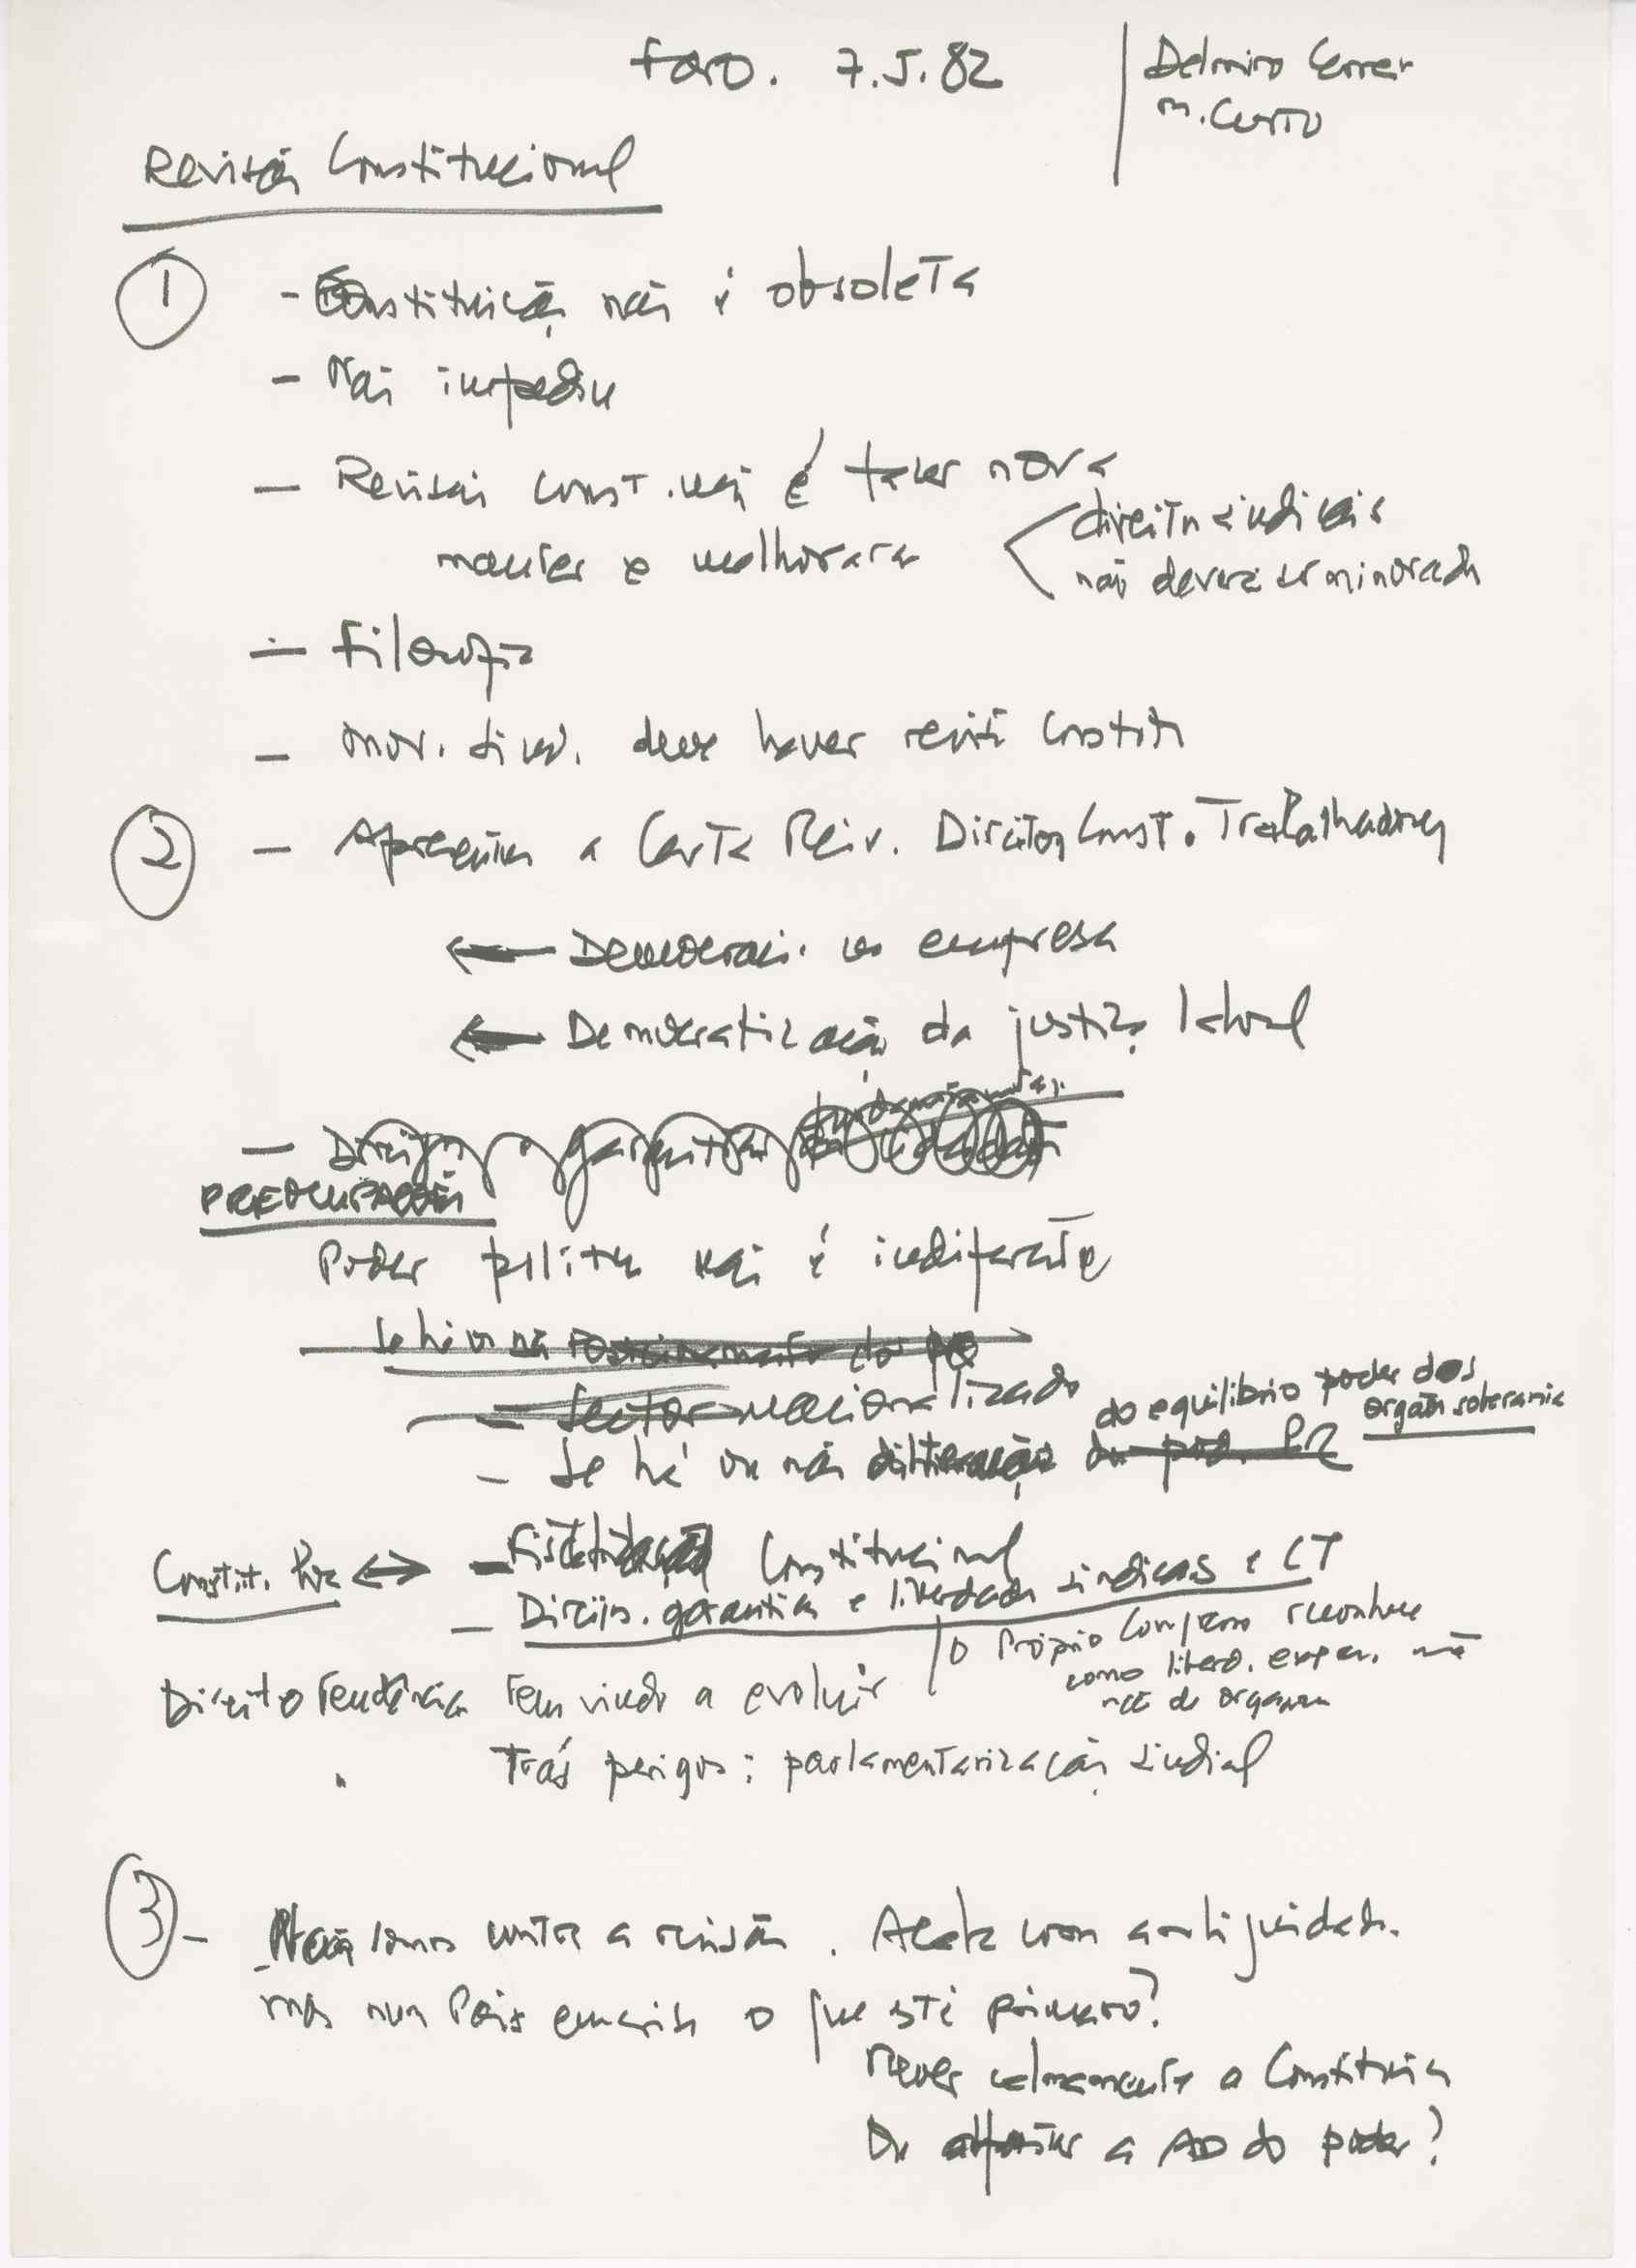 Faro. 7.5.82
Delmiro
M. Curto
Revisão Constitucional
1
- Constituição não é obsoleta
- Não impediu
- Revisão Const. não é fazer nova
manter e melhorar
direitos sindicais
não deverá ser minorada
- Filosofia
- Mov. sind. deve haver
2
- Apresentar a Carta Reiv. Direitos Const. Trabalhadores
← Democrati. na empresa
← Democratização da justiça laboral
- Direitos garantias
PREOCUPAÇÃO
Poder político não é indiferente
Se há ou não do PR
- Sector nacionalizado
do equilíbrio poder dos
orgãos soberania
- Se há ou não PR
- Fiscalização Constitucional
Constit. ↔
- Direitos. garantias e liberdades sindicais e CT
o Próprio Congresso reconhece
como liberd. não
não de
Direito Tendência tem vindo a evoluir
" Trás perigos: parlamentarização sindical
3
- Não somos contra a revisão. Acaba com ambiguidades.
mas num País em crise o que está primeiro?
Rever calmamente a Constituição
Ou afastar a AD do poder?